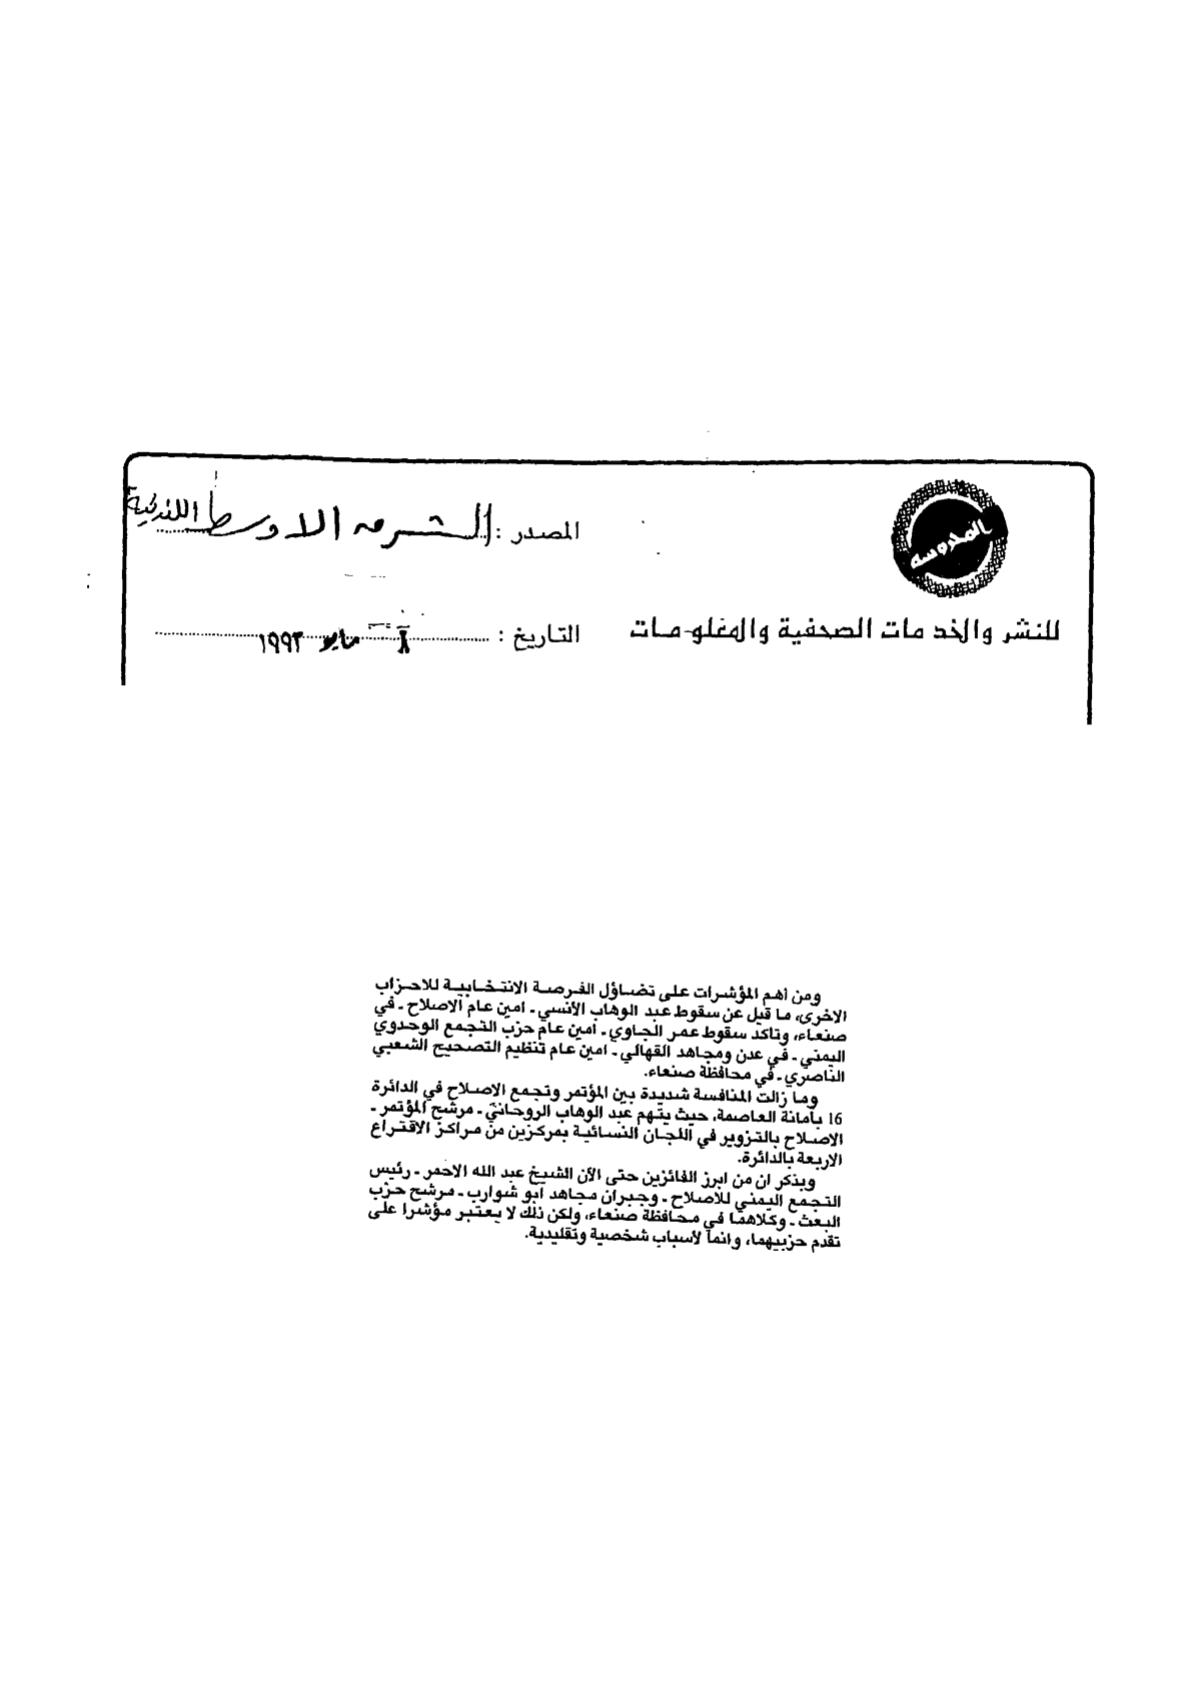 المصدر : الشرق الاوسط اللندنية
المحروسه
للنشر والخدمات الصحفية والمعلومات
التاريخ : مايو ١٩٩٣
ومن أهم المؤشرات على تضاؤل الفرصة الانتخابية للاحزاب
الاخرى، ما قيل عن سقوط عبد الوهاب الأنسي ـ امين عام الاصلاح ـ في
صنعاء، وتاكد سقوط عمر الجاوي ـ أمين عام حزب التجمع الوحدوي
اليمني ـ في عدن ومجاهد القهالي ـ امين عام تنظيم التصحيح الشعبي
الناصري ـ في محافظة صنعاء.
وما زالت المنافسة شديدة بين المؤتمر وتجمع الإصلاح في الدائرة
16 بأمانة العاصمة، حيث يتهم عبد الوهاب الروحاني ـ مرشح المؤتمر ـ
الاصلاح بالتزوير في اللجان النسائية بمركزين من مراكز الاقتراع
الاربعة بالدائرة.
ويذكر ان من ابرز الفائزين حتى الآن الشيخ عبد الله الاحمر ـ رئيس
التجمع اليمني للاصلاح ـ وجبران مجاهد ابو شوارب ـ مرشح حزب
البعث ـ وكلاهما في محافظة صنعاء، ولكن ذلك لا يعتبر مؤشرا على
تقدم حزبيهما، وانما لأسباب شخصية وتقليدية.